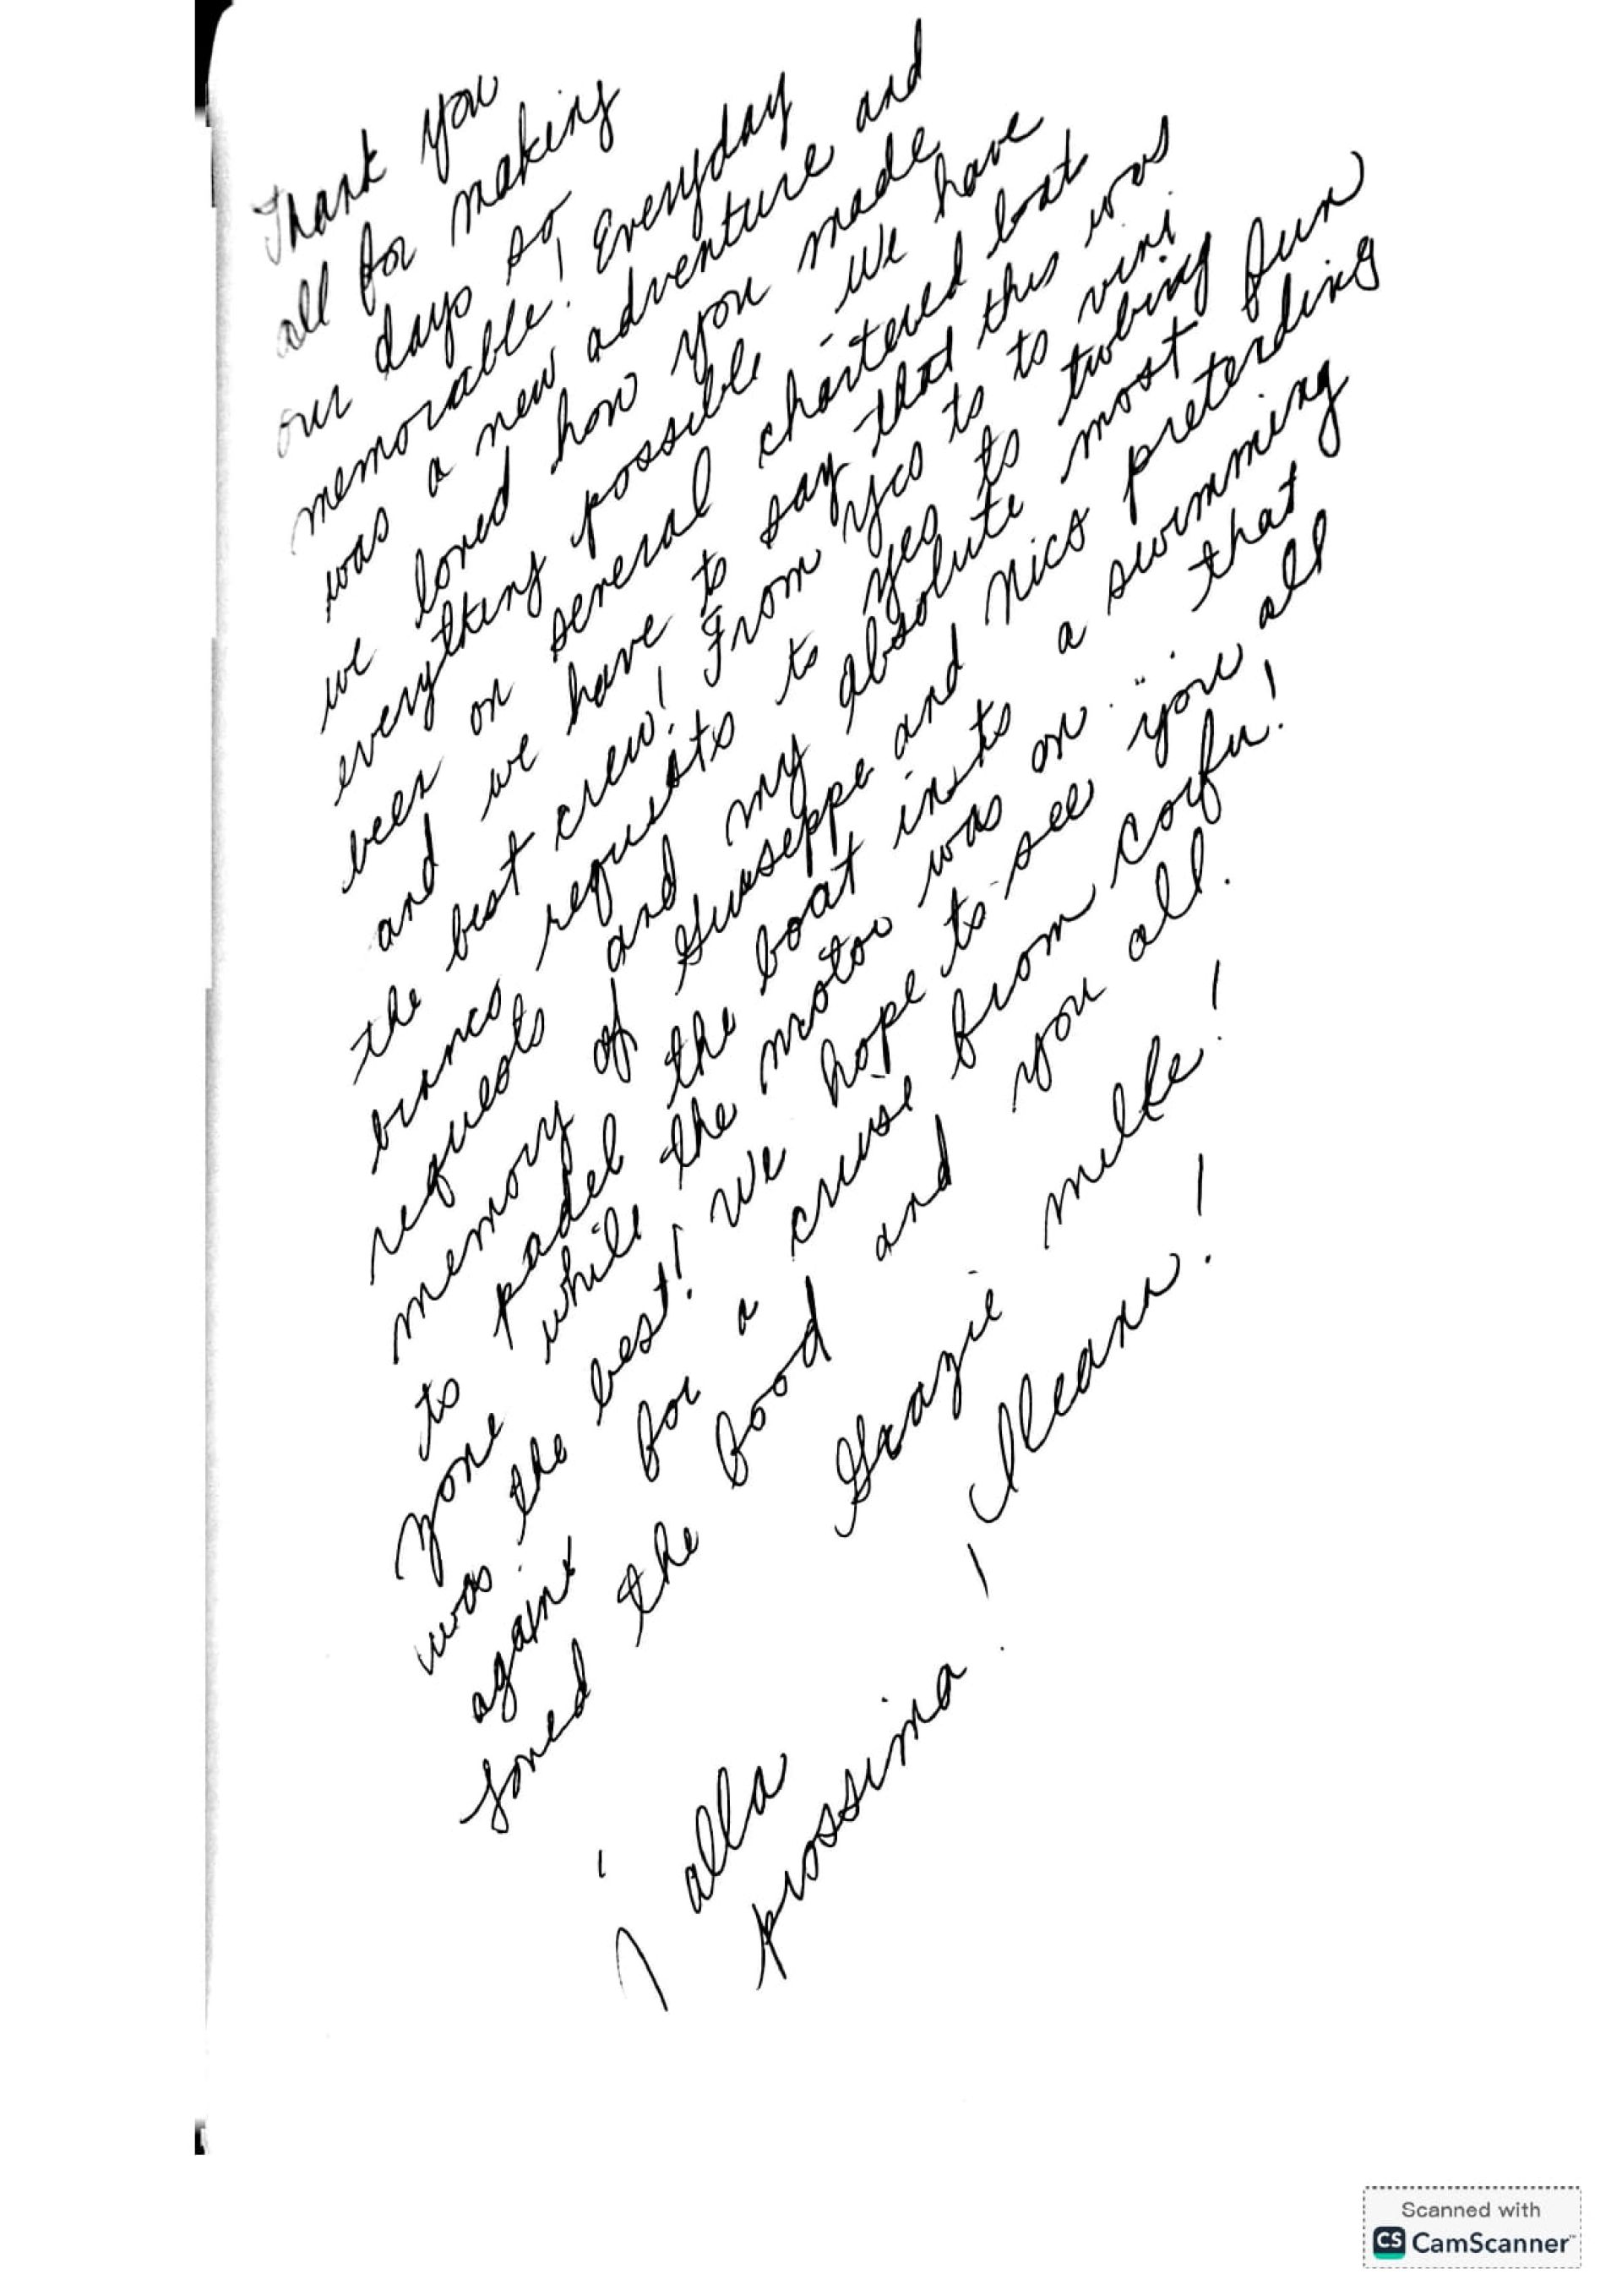 Thank you
all for making
our days so
memorable! Everyday
was a new adventure and
we loved how you made
everything possible. We have
been on several chartered boat
and we have to say that this was
the best crew! From yes to vini
biancs requists to yes to tubing
requests and my absolute most fun
memory of Giuseppe and Nics pretending
to padel the boat into a swimming
zone while the motor was on. that
was the best! We hope to see you all
again for a cruise from Corfu!
Loved the food and you all.
Grazie mille!
Ileana!
alla
prossima!
Scanned with
CS CamScanner